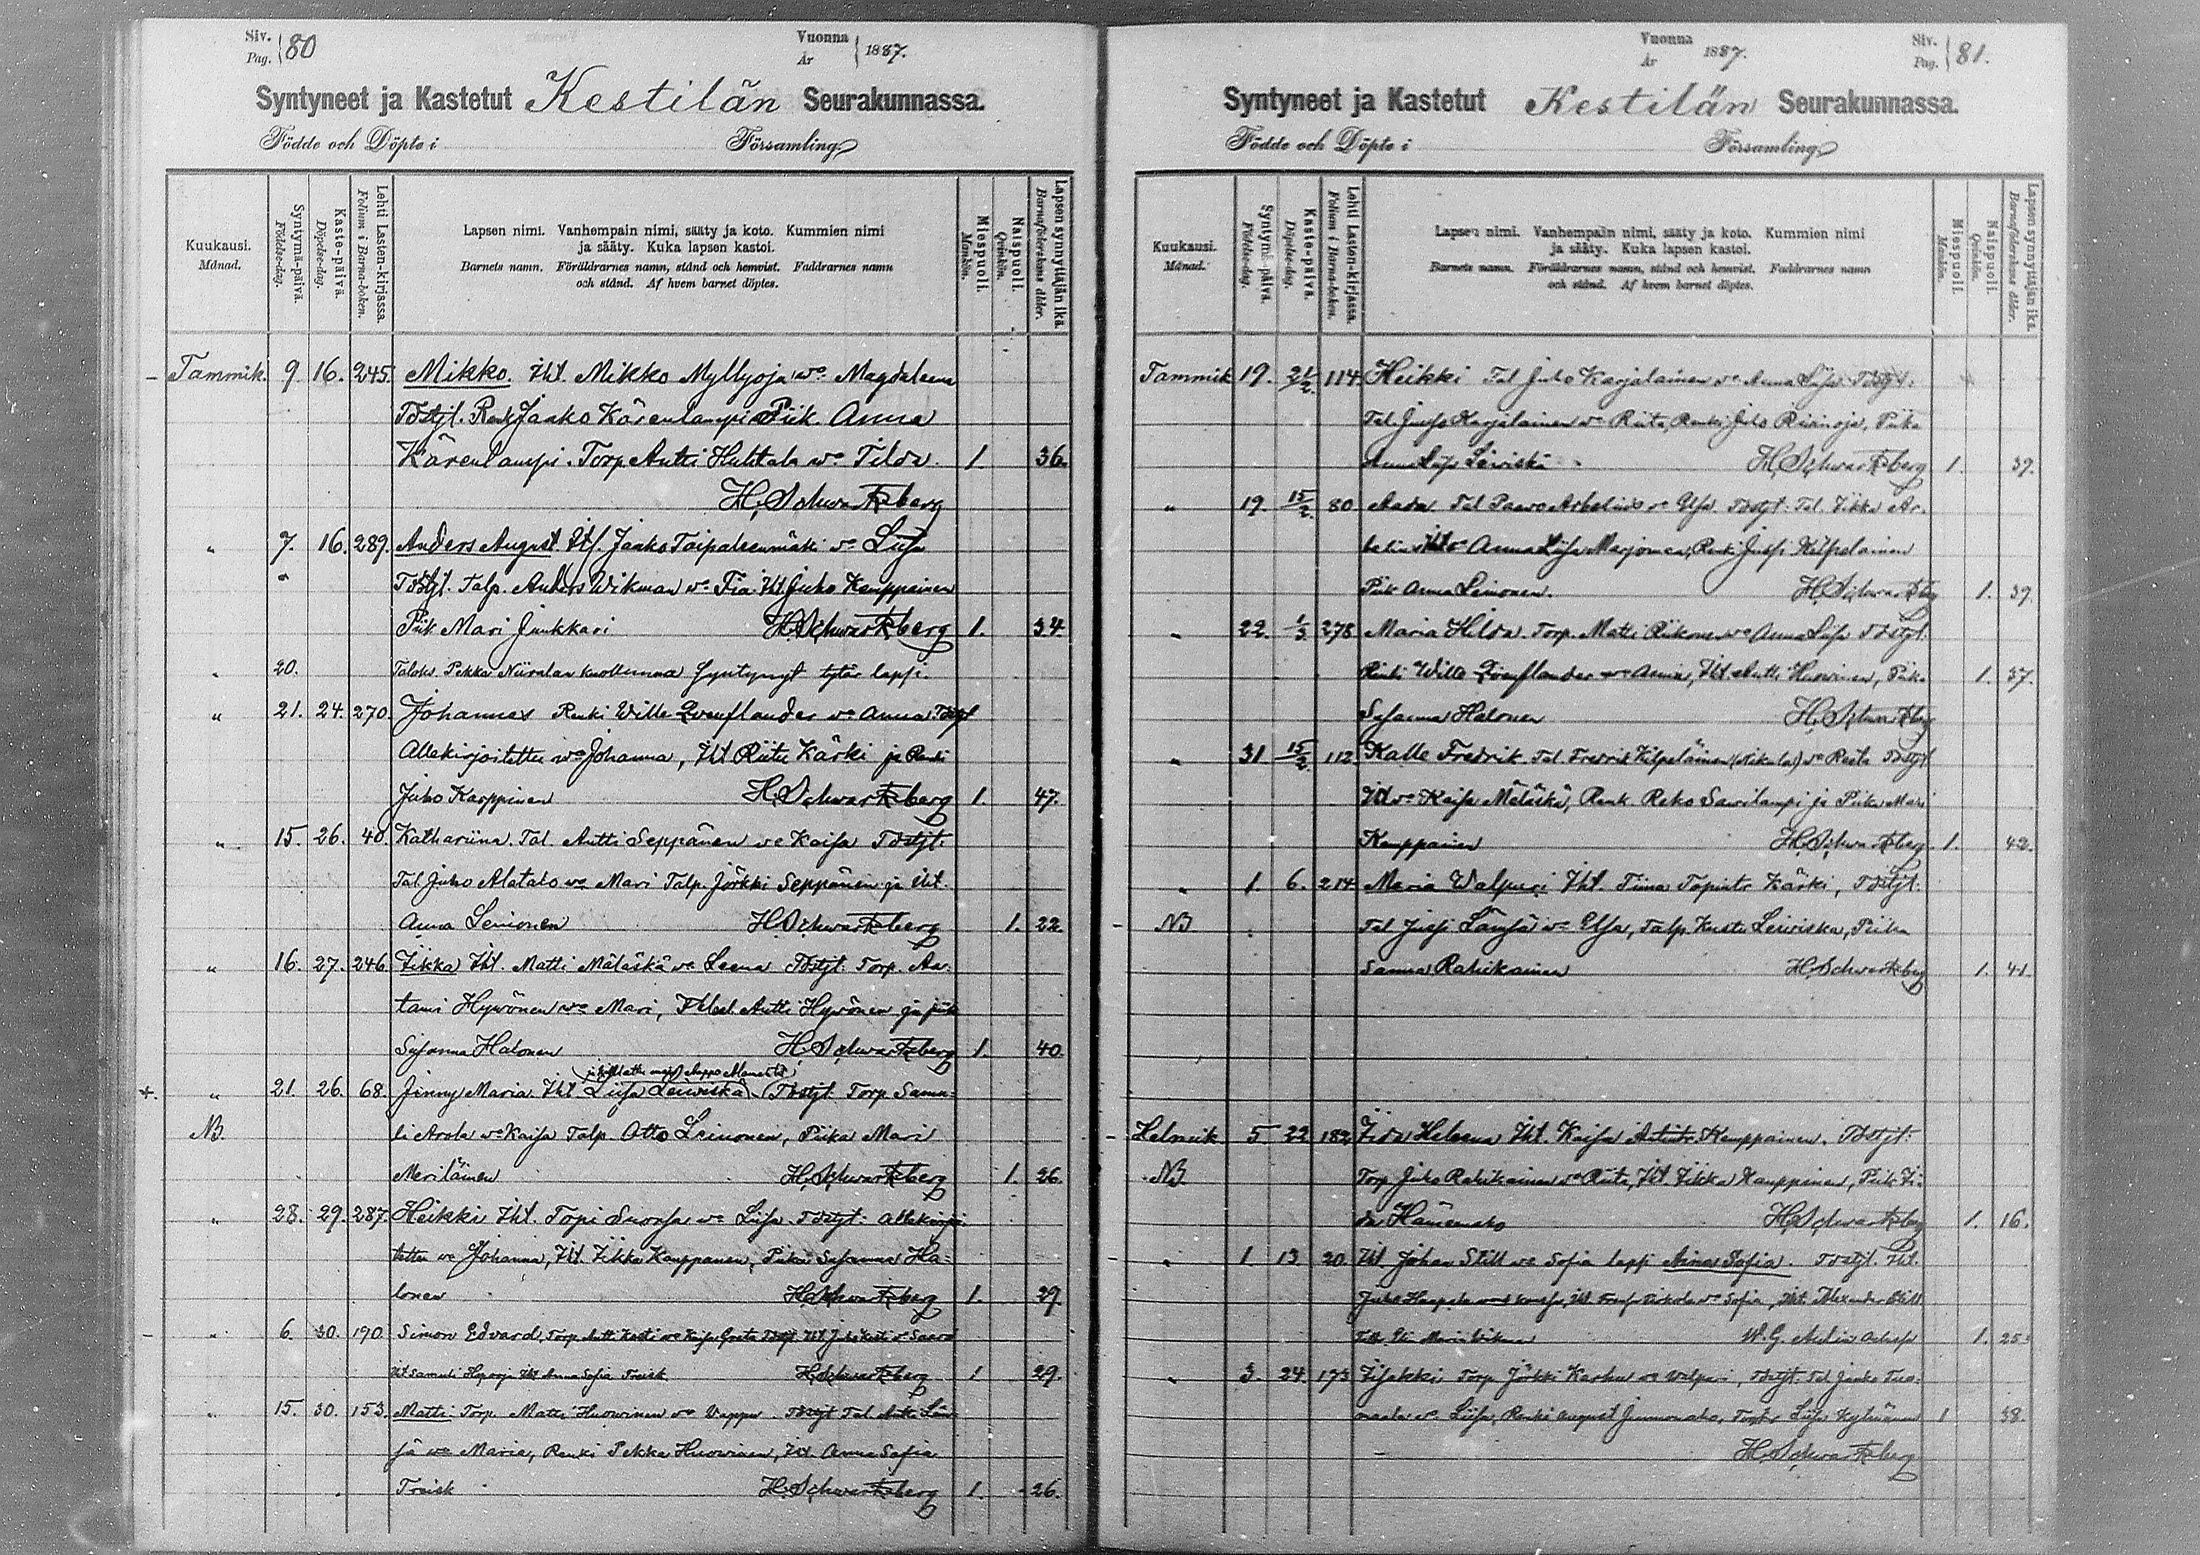 Siv. Pag. 80
Vuonna År 1887.
Syntyneet ja Kastetut Kestilän Seurakunnassa.
Födde och Döpte i Församling
Kuukausi. Månad.
Syntymä-päivä. Födelse-dag.
Kaste-päivä. Döpelse-dag.
Lehti Lasten-kirjassa. Folium i Barna-boken.
Lapsen nimi. Vanhempain nimi, sääty ja koto. Kummien nimi
ja sääty. Kuka lapsen kastoi.
Barnets namn. Föräldrarnes namn, stånd och hemvist. Faddrarnes namn
och stånd. Af hvem barnet döptes.
Miespuoli. Mankön.
Naispuoli. Qvinkön.
Lapsen synnyttäjän ikä. Barnaföderskans ålder.
Tammik. 9 16. 245. Mikko. Itt. Mikko Myllyoja wo Magdaleena
Tdstjt. Renk Jaako Kärenlampi Piik. Anna
Kärenlampi. Torp Antti Huhtala wo Tilda. 1 36.
H. Schwartzberg
" 7. 16. 289. Anders August. Itt. Jaako Taipaleenmäki wo Liisa
Tdstjt. Talp. Anders Wikman wo Fia. Itt. Juho Kauppinen
Piik Mari Junkkari H. Schwartzberg 1. 34
" 20. Taloks. Pekka Niiralan kuolleenna syntynyt tytär lapsi.
" 21. 24. 270. Johannes Renki Wille Qvenslander wo Anna. Tdstjt
Allekirjoitettu wo Johanna, Itt Riitu Kärki ja Renki
Juho Karppinen H. Schwartzberg 1. 47.
" 15. 26. 40. Kathariina. Tal. Antti Seppänen wo Kaisa Tdstjt.
Tal Juho Alatalo wo Mari Talp. Jörkki Seppänen ja Itt.
Anna Leinonen H. Schwartzberg 1. 22
" 16. 27. 246. Iikka Itt. Matti Mäläskä wo Leena Tdstjt. Torp. Aa-
tami Hyvönen wo Mari, Antti Hyvönen ja piik
Susanna Halonen H. Schwartzberg 1. 40
" 21. 26. 68. Jinny Maria. Itt Liisa Leiwiskä Tdstjt. Torp Samu-
NB. li Arola wo Kaisa Talp. Otto Leinonen, Piika Mari
Meriläinen H. Schwartzberg 1. 26.
" 28. 29. 287. Heikki Itt. Topi Suorsa wo Liisa. Tdstjt: Allekirjoi-
tettu wo Johanna, Itt. Iikka Kauppanen, Piika Susanna Ha-
lonen H. Schwartzberg 1. 29.
" 6. 30. 190. Simon Edvard, Torp. Antt Kesti wo Kaisa Greta Tdstjt
Itt Samuli Itt Anna Sofia Treisk H. Schwartzberg 1 29.
" 15. 30. 153. Matti Torp. Matti Huowinen wo Vappu. Tdstjt Tal Antt Län-
sä wo Maria, Renki Pekka Huowinen, Itt Anna Sofia
Treisk H. Schwartzberg 1. 26.
Vuonna År 1887.
Siv. Pag. 81.
Syntyneet ja Kastetut Kestilän Seurakunnassa.
Födde och Döpte i Församling
Kuukausi. Månad.
Syntymä-päivä. Födelse-dag.
Kaste-päivä. Döpelse-dag.
Lehti Lasten-kirjassa. Folium i Barna-boken.
Lapsen nimi. Vanhempain nimi, sääty ja koto. Kummien nimi
ja sääty. Kuka lapsen kastoi.
Barnets namn. Föräldrarnes namn, stånd och hemvist. Faddrarnes namn
och stånd. Af hvem barnet döptes.
Miespuoli. Mankön.
Naispuoli. Qvinkön.
Lapsen synnyttäjän ikä. Barnaföderskans ålder.
Tammik 19. 21/2 114 Heikki Tal Juho Karjalainen wo Anna Liisa Tdstjt.
Tal. Karjalainen wo Riita, Renki Juho Piika
Anna Liisa Leiwiskä H. Schwartzberg 1. 39.
" 19. 15/2 80 Aada Tal Paawo Arbelius wo Elsa. Tdstjt. Tal. Iikka Ar-
belius Anna Liisa Marjomaa, Renki Kilpeläinen
Piik Anna Leinonen. H. Schwartzberg 1. 39.
" 22. 1/3 278 Maria Hilda. Torp. Matti Piikonen wo Anna Liisa Tdstjt.
Renki Wille Qvenslander wo Anna, Itt. Antti Huowinen, Piika 1. 37.
Susanna Halonen H. Schwartzberg
" 31 15/2 112 Kalle Fredrik Tal. Fredrik Kilpeläinen (Nikula) wo Reeta Tdstjt
Kaisa Mäläskä, Renk. Reko Sawilampi ja Piika Mari
Kauppinen H. Schwartzberg 1. 42.
" 1 6. 214 Maria Walpuri Itt. Tiina Topintr Kärki, Tdstjt.
NB Tal Jussi Länsä wo Elsa, Talp. Kusti Leiwiska, Piika
Sanna Rahikainen H. Schwartzberg 1. 41.
Helmik 5 22 182 Iida Heleena Itt. Kaisa Kauppinen. Tdstjt:
NB Torp Juho Rahikainen wo Riita, Itt. Iikka Kauppinen, Piik Ii-
da H. Schwartzberg 1. 16.
" 1. 13 20 Itt Johan Still wo Sofia laps Aina Sofia. Tdstjt. Itt.
Juho wo Sofia, Itt. Alexander Still
1. 25
" 3. 24. 173 Iisakki Torp. Jörkki Karhu wo Walpuri, Tdstjt. Tal
wo Liisa, Renki August Liisa 1 38.
H. Schwartzberg